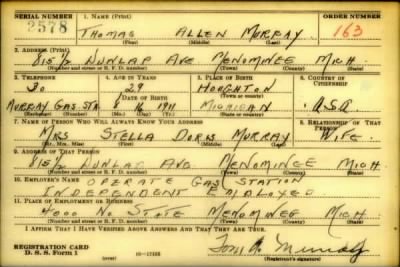 SERIAL NUMBER 1. NAME (Print) ORDER NUMBER
2578 THOMAS ALLEN MURRAY 163
(First) (Middle) (Last)
2. ADDRESS (Print)
815 1/2 DUNLAP AVE MENOMINEE MICH
(Number and street or R. F. D. number) (Town) (County) (State)
3. TELEPHONE 4. AGE IN YEARS 5. PLACE OF BIRTH 6. COUNTRY OF CITIZENSHIP
30 29 HOUGHTON
DATE OF BIRTH (Town or county)
MURRAY GAS STA 16 1911 MICHIGAN U.S.A.
(Exchange) (Number) (Mo.) (Day) (Yr.) (State or country)
7. NAME OF PERSON WHO WILL ALWAYS KNOW YOUR ADDRESS 8. RELATIONSHIP OF THAT PERSON
MRS STELLA DORIS MURRAY WIFE
(Mr., Mrs., Miss) (First) (Middle) (Last)
9. ADDRESS OF THAT PERSON
815 1/2 DUNLAP AVE MENOMINEE MICH
(Number and street or R. F. D. number) (Town) (County) (State)
10. EMPLOYER'S NAME OPERATE GAS STATION
INDEPENDENT EMPLOYED
11. PLACE OF EMPLOYMENT OR BUSINESS
4000 NO STATE MENOMINEE MICH
(Number and street or R. F. D. number) (Town) (County) (State)
I AFFIRM THAT I HAVE VERIFIED ABOVE ANSWERS AND THAT THEY ARE TRUE.
REGISTRATION CARD
D. S. S. Form 1 (over) 16-17105
(Registrant's signature)